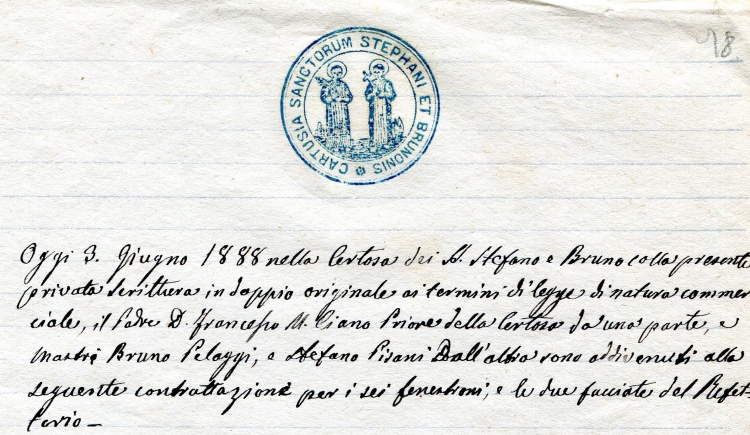 98
CARTUSIA SANCTORUM STEPHANI ET BRUNONIS
Oggi 3. Giugno 1888 nella Certosa dei SS. Stefano e Bruno colla presente
privata scrittura in doppio originale ai termini di legge di natura commer
ciale, il Padre D. Francesco M. Ciano Priore della Certosa da una parte, e
mastri Bruno Pelaggi, e Stefano Pisani Dall'altra sono addivenuti alla
seguente contrattazione per i sei fenestroni, e le due facciate del Refet-
torio_